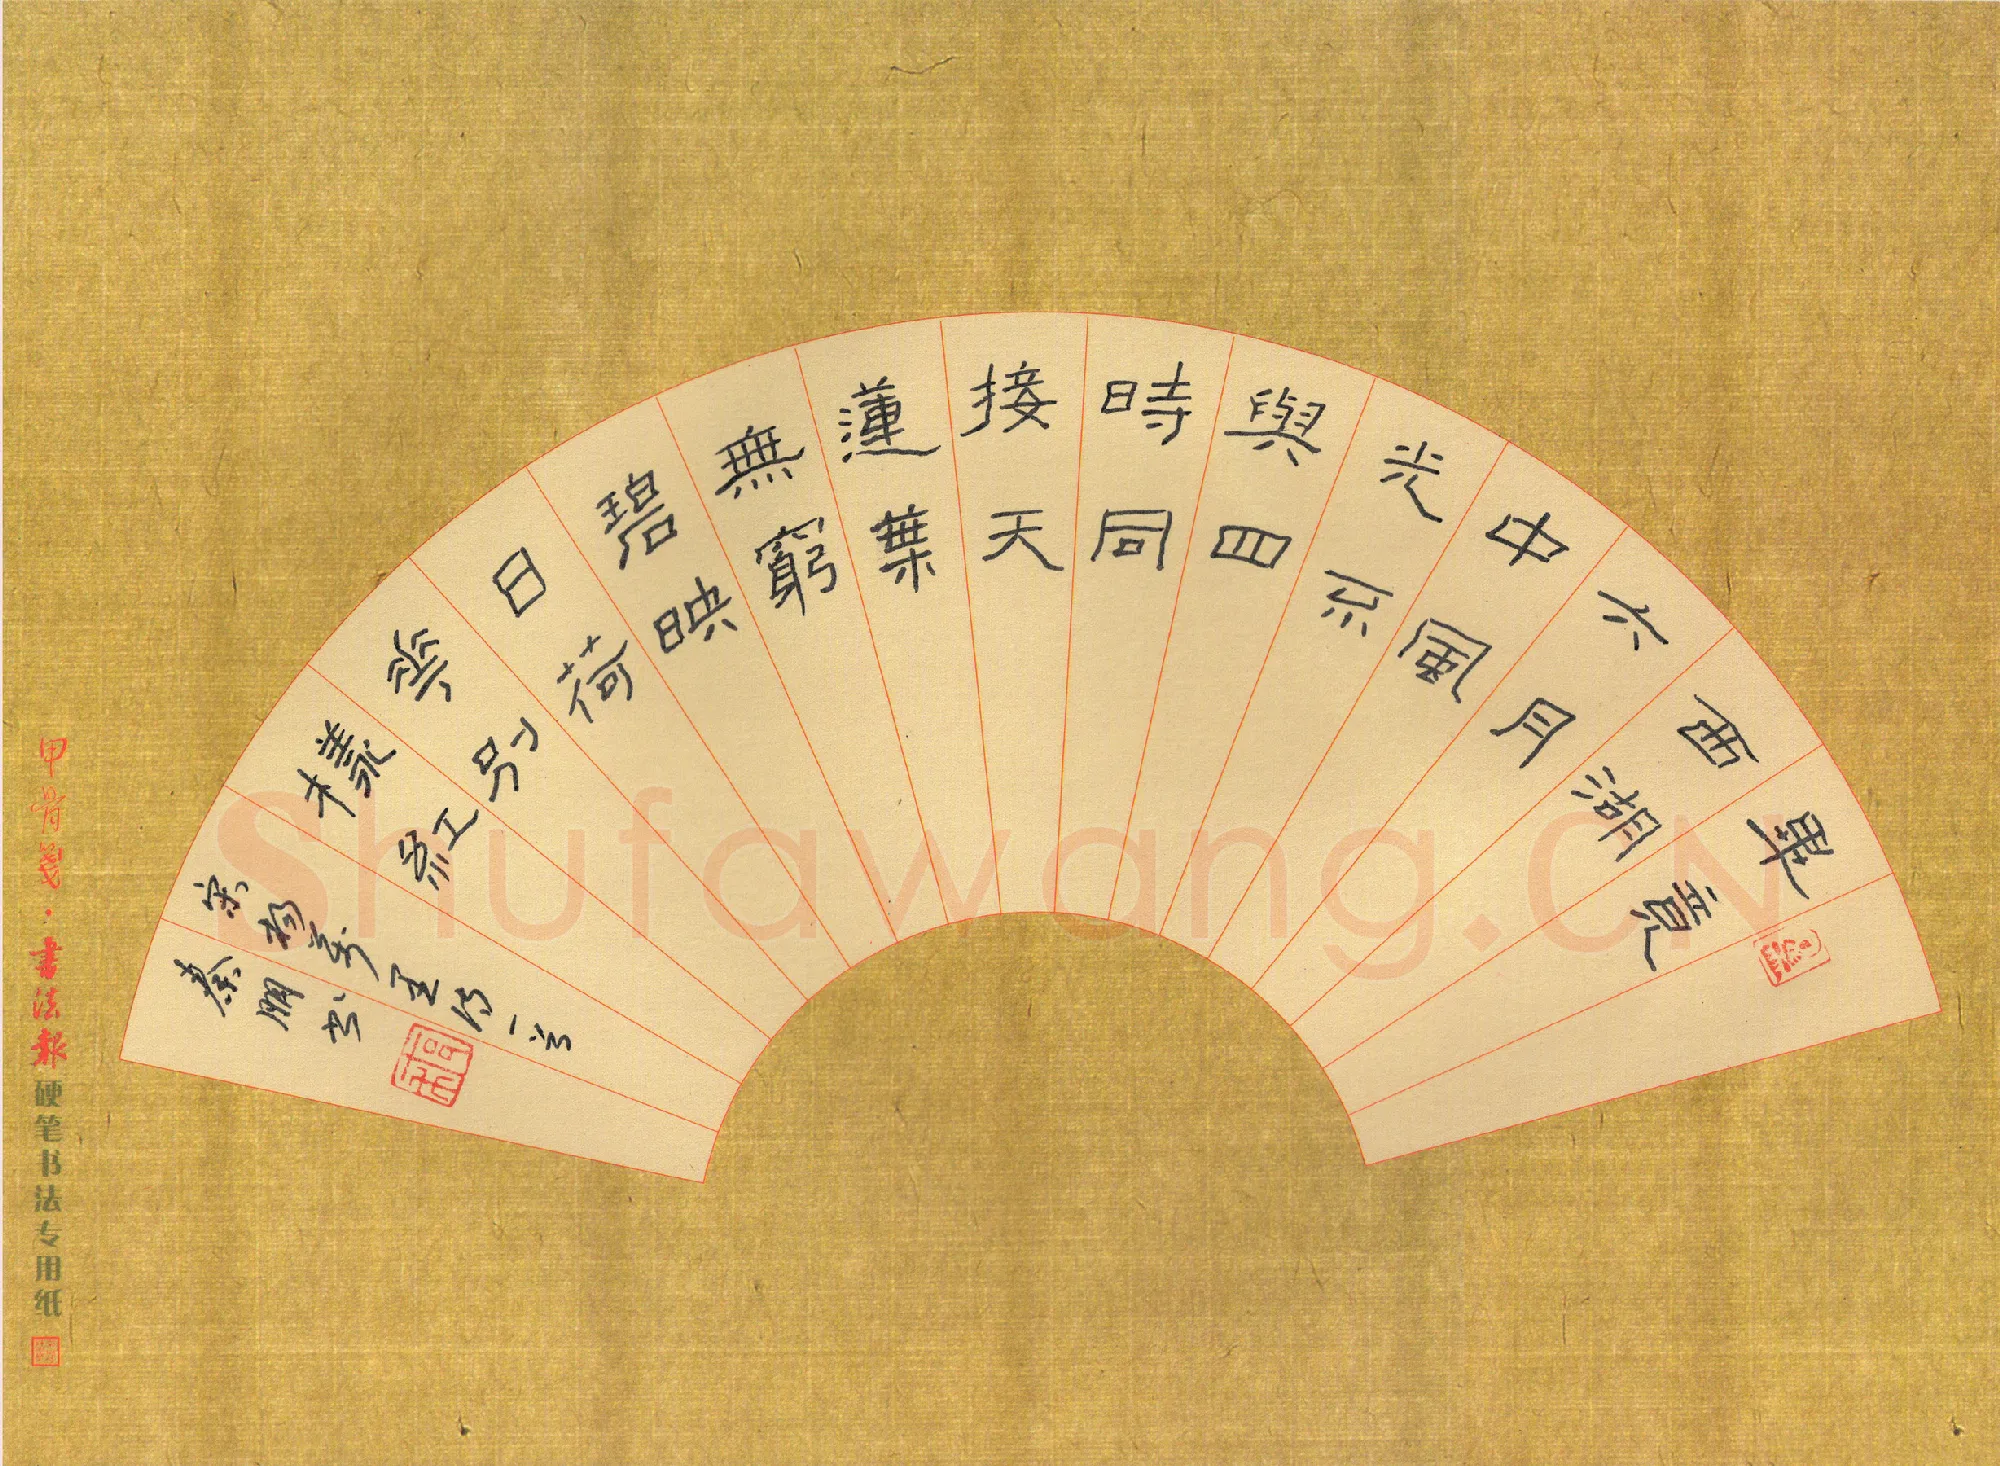 畢竟
西湖
六月
中風
光不
與四
時同
接天
蓮葉
無窮
碧映
日荷
華別
樣紅
宋楊萬里詩一首
秦朋书
甲骨笺·書法報硬笔书法专用纸
Shufawang.CN